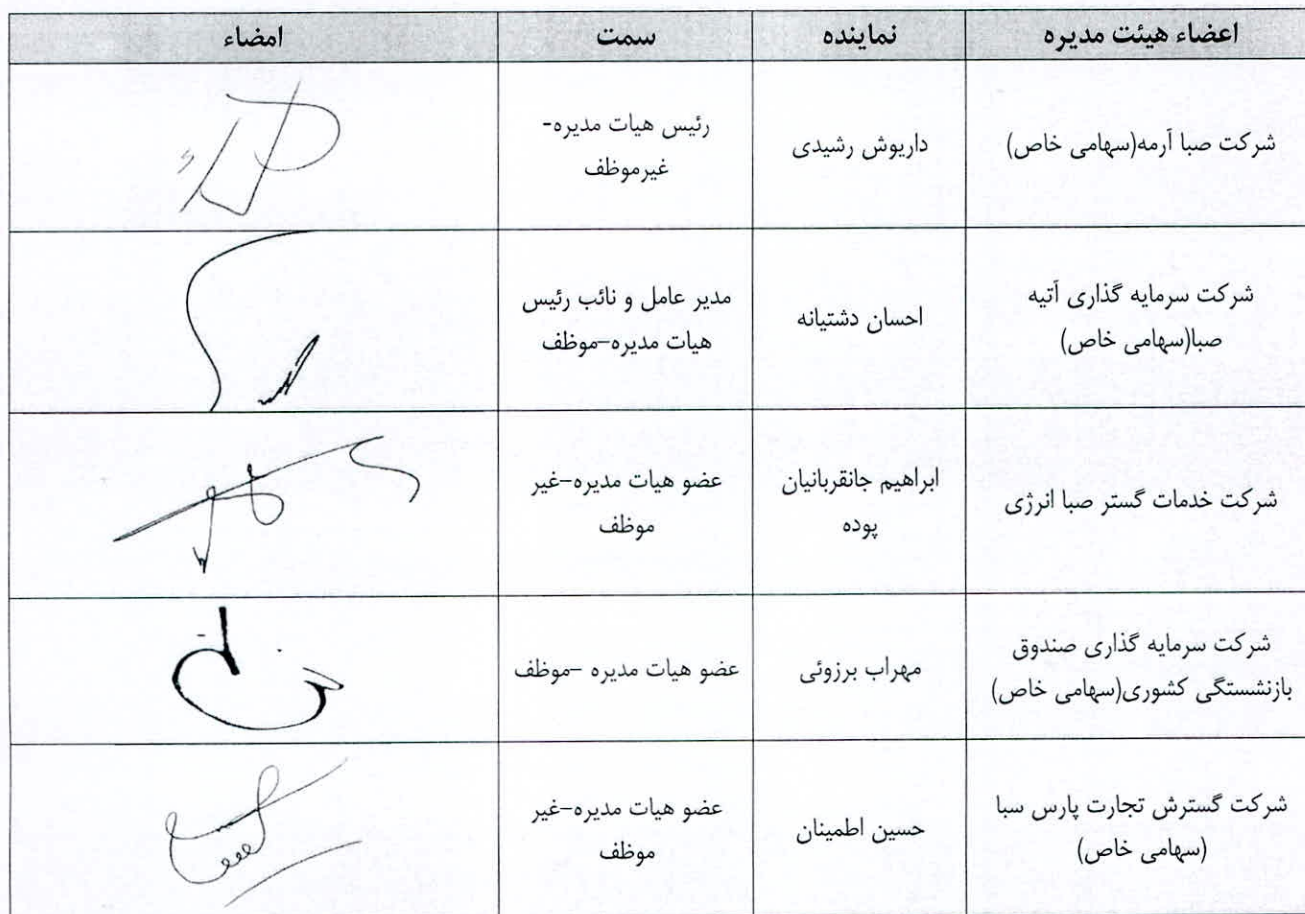 اعضاء هیئت مدیره نماینده سمت امضاء
شرکت صبا آرمه(سهامی خاص) داریوش رشیدی رئیس هیات مدیره-
غیرموظف
شرکت سرمایه گذاری آتیه
صبا(سهامی خاص)
احسان دشتیانه
مدیر عامل و نائب رئیس
هیات مدیره–موظف
شرکت خدمات گستر صبا انرژی
ابراهیم جانقربانیان
پوده
عضو هیات مدیره–غیر
موظف
شرکت سرمایه گذاری صندوق
بازنشستگی کشوری(سهامی خاص)
مهراب برزوئی
عضو هیات مدیره –موظف
شرکت گسترش تجارت پارس سبا
(سهامی خاص)
حسین اطمینان
عضو هیات مدیره–غیر
موظف